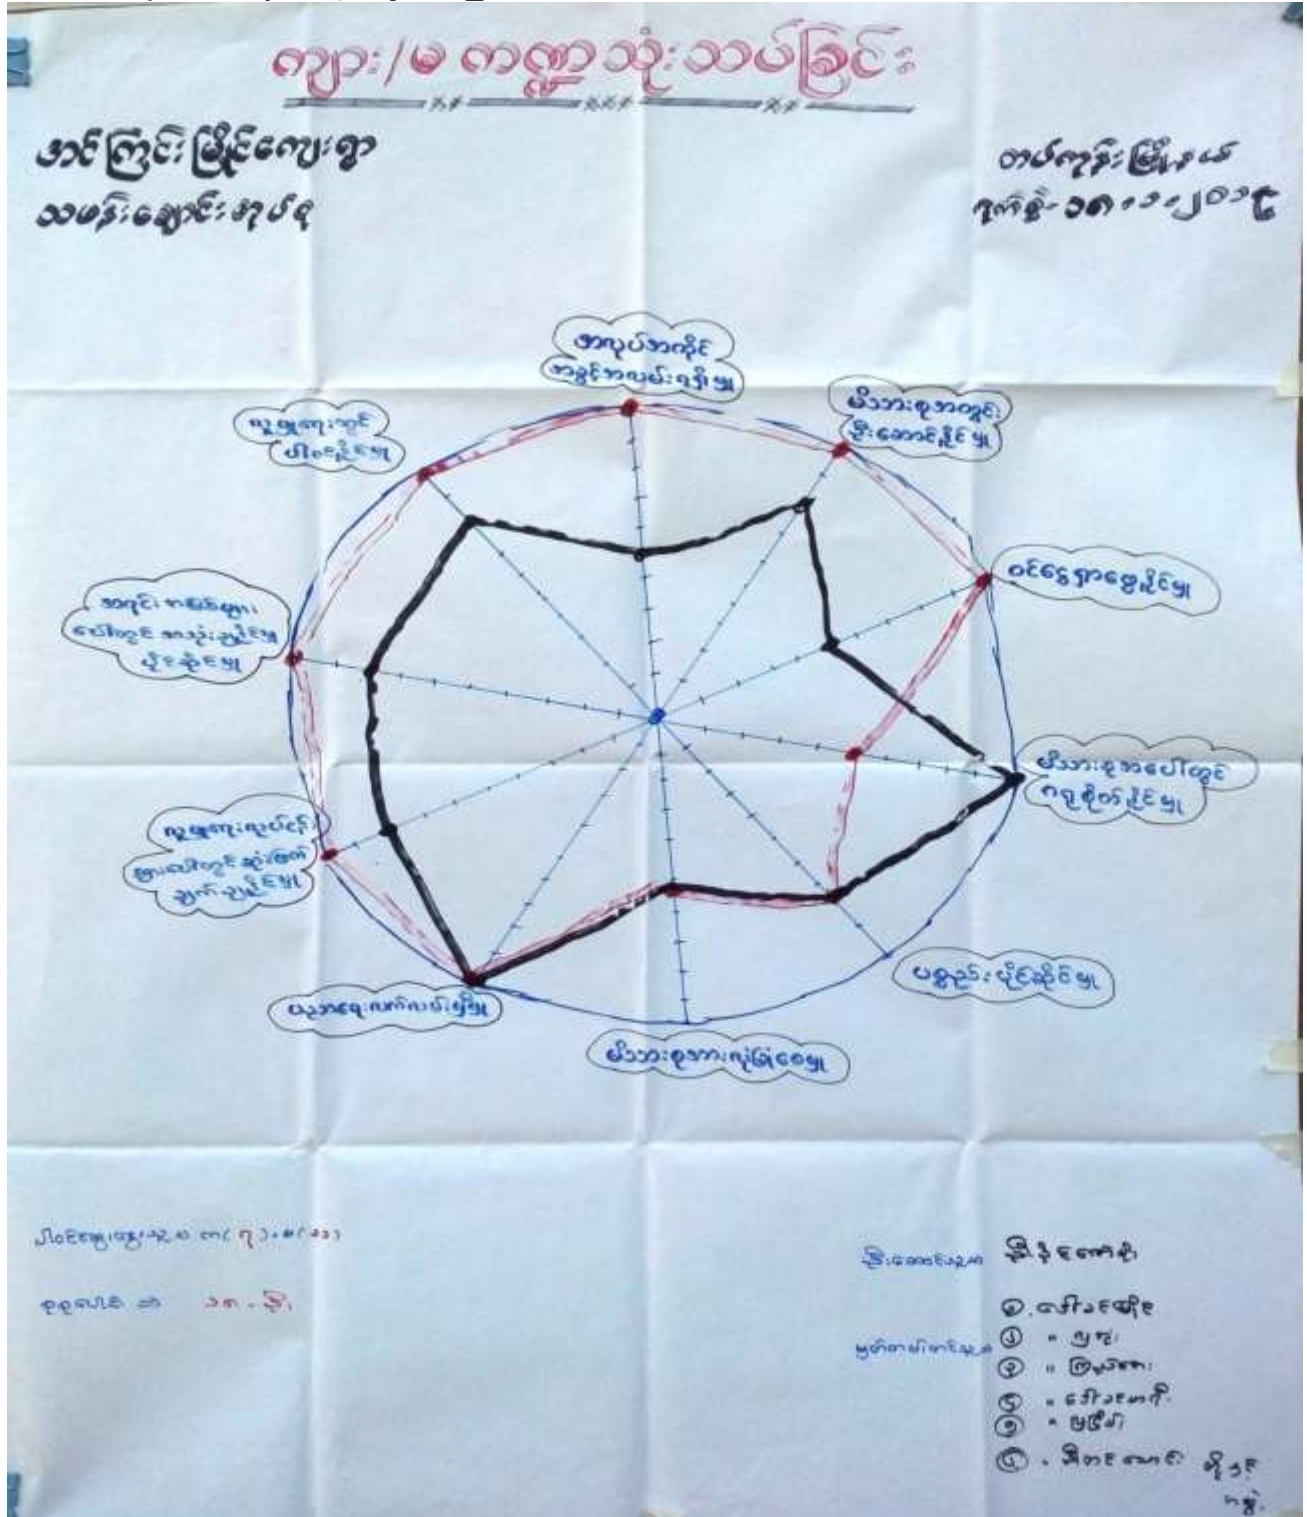 ကျား/မ ကဏ္ဍသုံးသပ်ခြင်း
အင်ကြင်းမြိုင်ကျေးရွာ
သဖန်းချောင်းအုပ်စု
တပ်ကုန်းမြို့နယ်
ရက်စွဲ- ၁၈.၁.၂၀၁၉
အလုပ်အကိုင်
အခွင့်အလမ်းရရှိမှု
မိသားစုအတွင်း
ဦးဆောင်နိုင်မှု
ဝင်ငွေရှာဖွေနိုင်မှု
မိသားစုအပေါ်တွင်
ဂရုစိုက်နိုင်မှု
ပစ္စည်းပိုင်ဆိုင်မှု
မိသားစုအားလုံခြုံစေမှု
ပညာရေးလက်လမ်းမှီမှု
လူမှုရေးလုပ်ငန်း
များပေါ်တွင်ဆုံးဖြတ်
ချက်ချနိုင်မှု
အရင်းအမြစ်များ
ပေါ်တွင် အသုံးချနိုင်မှု
ပိုင်ဆိုင်မှု
လူမှုရေးတွင်
ပါဝင်နိုင်မှု
ပါဝင်ဆွေးနွေးသူ
စုစုပေါင်း ၁၈ - ဦး
ဦးဆောင်သူ
မှတ်တမ်းတင်သူ